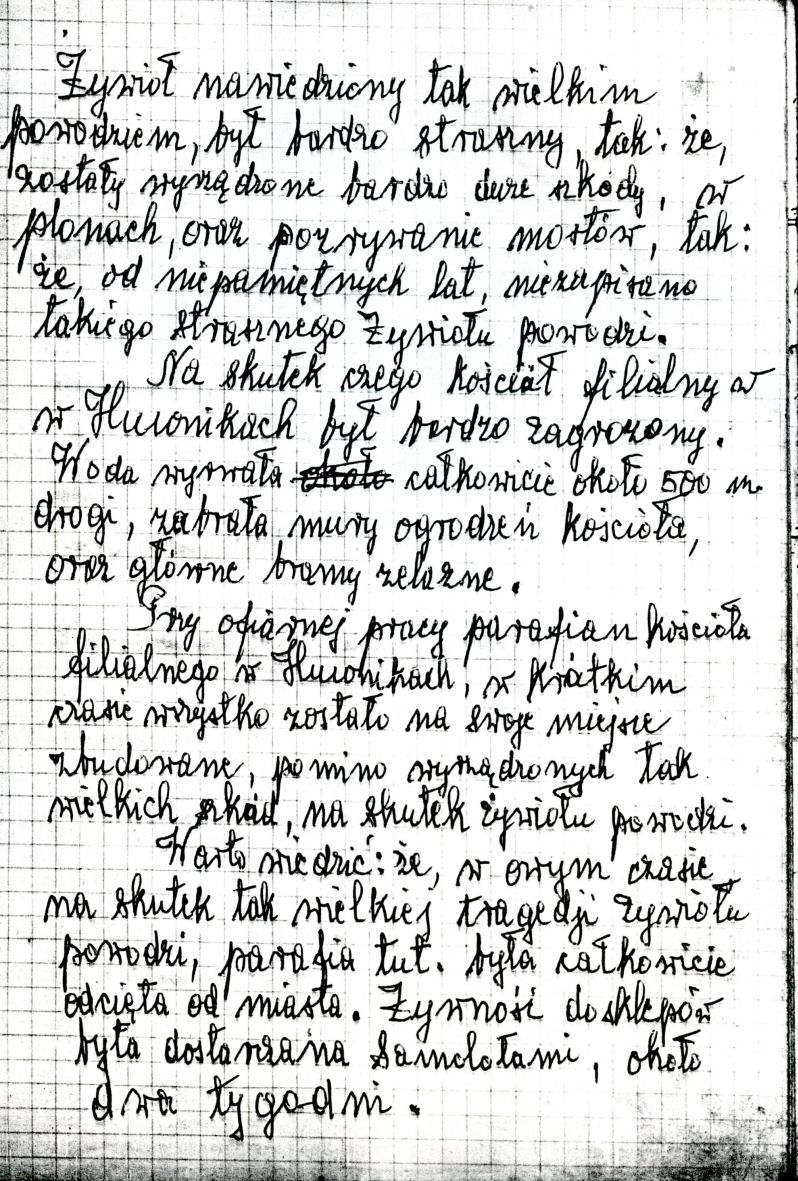 Żywioł nawiedziony tak wielkim
powodziem, był bardzo straszny, tak: że,
zostały wyrządzone bardzo duże szkody, w
plonach, oraz pozrywanie mostów, tak:
że, od niepamiętnych lat, niezapisano
takiego strasznego Żywiołu powodzi.
Na skutek czego kościół filialny w
w Huwnikach był bardzo zagrożony.
Woda wyrwała około całkowicie około 500 m.
drogi, zabrała mury ogrodzeń kościoła,
oraz główne bramy zelazne.
Przy ofiarnej pracy parafian kościoła
filialnego w Huwnikach, w krótkim
czasie wszystko zostało na swoje miejsce
zbudowane, pomino wyrządzonych tak
wielkich szkód, na skutek żywiołu powodzi.
Warto wiedzić: że, w owym czasie
na skutek tak wielkiej tragedji żywiołu
powodzi, parafia tut. była całkowicie
odcięta od miasta. Żywność do sklepów
była dostarczana Samolotami, około
dwa tygodni.